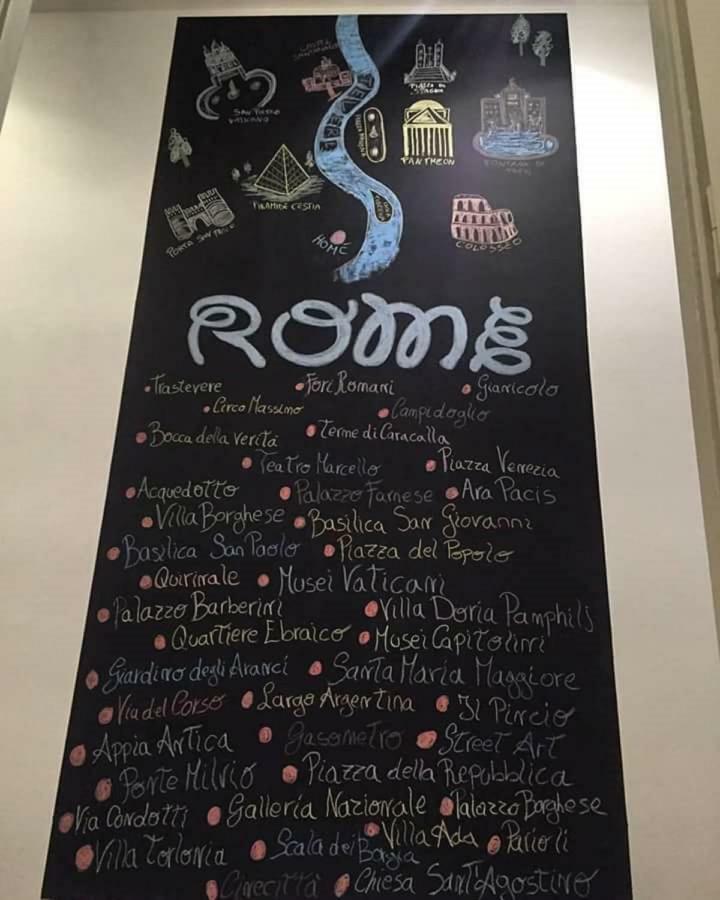 CASTEL
SANT'ANGELO
SAN PIETRO
VATICANO
TEVERE
PIAZZA NAVONA
PIAZZA DI
SPAGNA
PANTHEON
FONTANA DI
TREVI
PIRAMIDE CESTIA
PORTA SAN PAOLO
HOME
COLOSSEO
ROME
Trastevere Fori Romani Gianicolo
Circo Massimo Campidoglio
Bocca della verità Terme di Caracalla
Teatro Marcello Piazza Venezia
Acquedotto Palazzo Farnese Ara Pacis
Villa Borghese Basilica San Giovanni
Basilica San Paolo Piazza del Popolo
Quirinale Musei Vaticani
Palazzo Barberini Villa Doria Pamphilj
Quartiere Ebraico Musei Capitolini
Giardino degli Aranci Santa Maria Maggiore
Via del Corso Largo Argentina Il Pincio
Appia Antica Gasometro Street Art
Ponte Milvio Piazza della Repubblica
Via Condotti Galleria Nazionale Palazzo Borghese
Villa Torlonia Scala dei Borgia Villa Ada Parioli
Cinecittà Chiesa Sant'Agostino